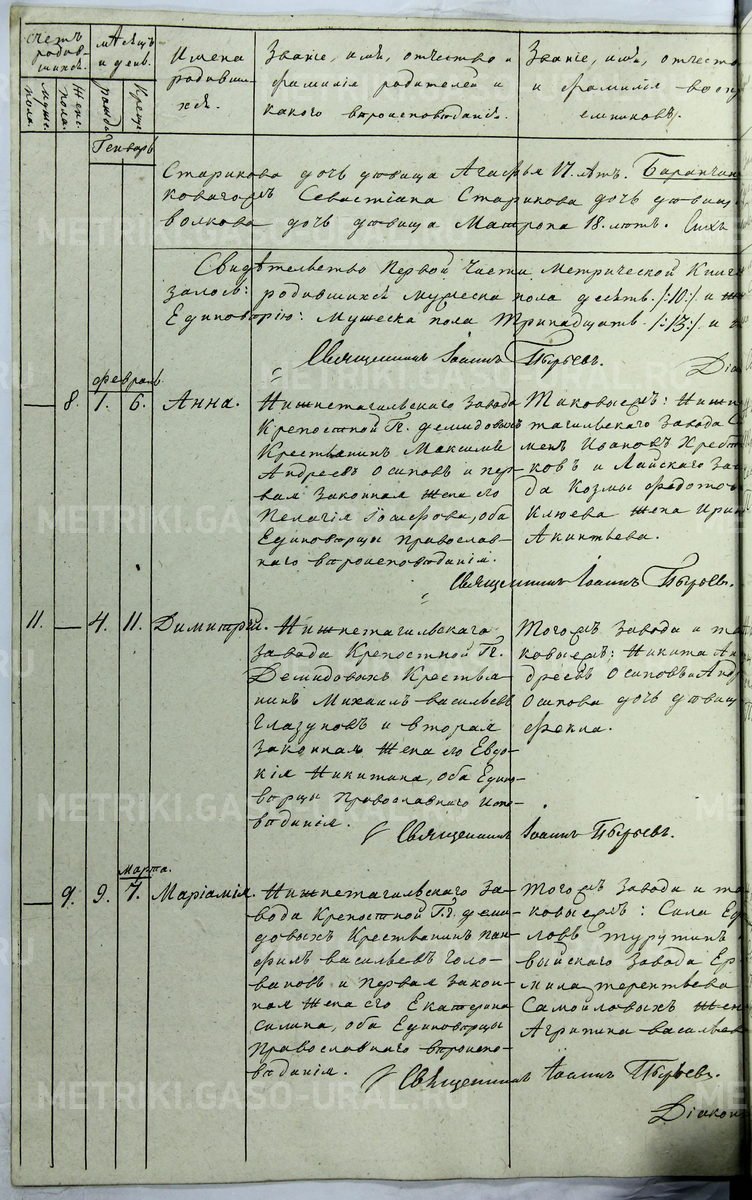 счетъ родив-шихся.
Муже: пола.
Жен: пола.
мѣсяцъ и день.
рожд:
Крещ:
Имена родивши-хся.
Званіе, имя, отчество и
фамилія родителей и
какого вѣроисповѣданія.
Званіе, имя, отчество
и фамилія воспри
емниковъ.
Генварь
Старикова дочь дѣвица Агафья 17. лѣтъ.
Севастіана Старикова дочь дѣвиц
волкова дочь дѣвица Матрона 18. лѣтъ. Сихъ
Свидѣтельство Первой Части Метрической Книги
залось: родившихся мужеска пола десять /:10:/ и
Единовѣрію: Мужеска пола Тринадцать /:13:/ и
Священникъ Іоаннъ Пырьевъ.
Февраль
— 8. 1. 6. Анна.
Нижнетагильскаго завода
Крепостной Гг. Демидовыхъ
Крестьянинъ Максимъ
Андреевъ Осиповъ и пер-
вая законная жена его
Пелагія Іосифова, оба
Единоверцы православ-
наго вѣроисповѣданія.
Таковыежъ: Нижне
тагильскаго завода Се
менъ Ивановъ Хребт
ковъ и Лайскаго заво
да Козмы Федотова
Клюева жена Ирина
Акинтьева.
Священникъ Іоаннъ Пырьевъ.
11. — 4. 11. Димитрій.
Нижнетагильскаго
завода Крепостной Гг.
Демидовыхъ Крестья-
нинъ Михаилъ васильевъ
Глазуновъ и вторая
законная жена его Евдо-
кія Никитина, оба Едино-
верцы Православнаго испо-
вѣданія.
Тогожъ завода и та
ковыежъ: Никита Ан
дреевъ Осиповъ и Андр
Осипова дочь дѣвица
Фекла.
Священникъ Іоаннъ Пырьевъ.
Марта.
— 9. 9. 7. Маріамія.
Нижнетагильскаго за-
вода Крепостной Гг. деми-
довыхъ Крестьянинъ Пан-
филъ васильевъ Голо-
вановъ и Первая закон-
ная жена его Екатерина
силина, оба Единоверцы
Православнаго вѣроиспо-
вѣданія.
Тогожъ завода и та
ковыежъ: Сила Еф
ловъ Турутинъ
выйскаго завода Ер
мила терентьева
Самойловыхъ жена
Агрипина васильев
Священникъ Іоаннъ Пырьевъ.
Діаконъ
METRIKI.GASO-URAL.RU